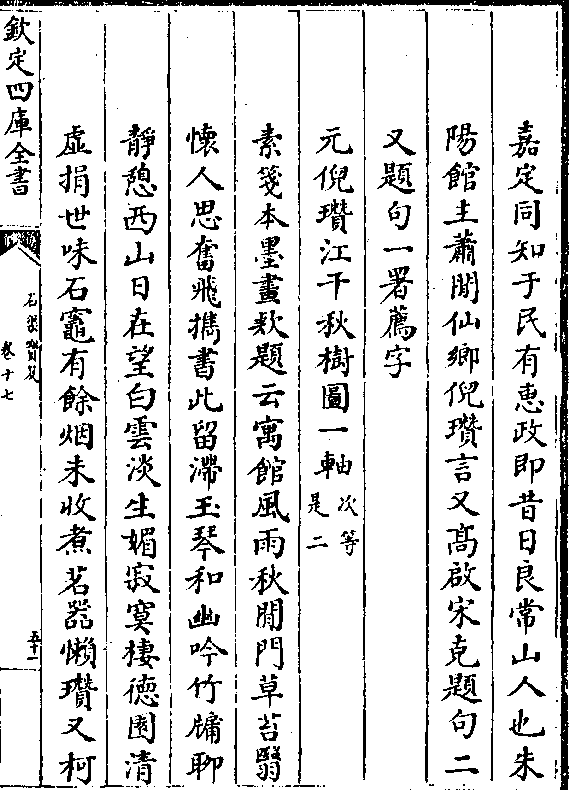 嘉定同知于民有惠政即昔日良常山人也朱
陽館主蕭閒仙卿倪瓚言又髙啟宋克題句二
又題句一署薦字
元倪瓚江干秋樹圖一軸次等是二
素箋本墨畫欵題云寓館風雨秋閒門草苔翳
懐人思奮飛攜書此留滯玉琴和幽吟竹牗聊
靜憩西山日在望白雲淡生媚寂寞棲徳園清
虚捐世味石竈有餘烟未收煮茗器懶瓚又柯
欽定四庫全書
石渠寶笈
卷十七
五十一